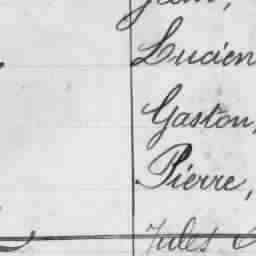 Jean,
Lucien
Gaston,
Pierre,
Jules